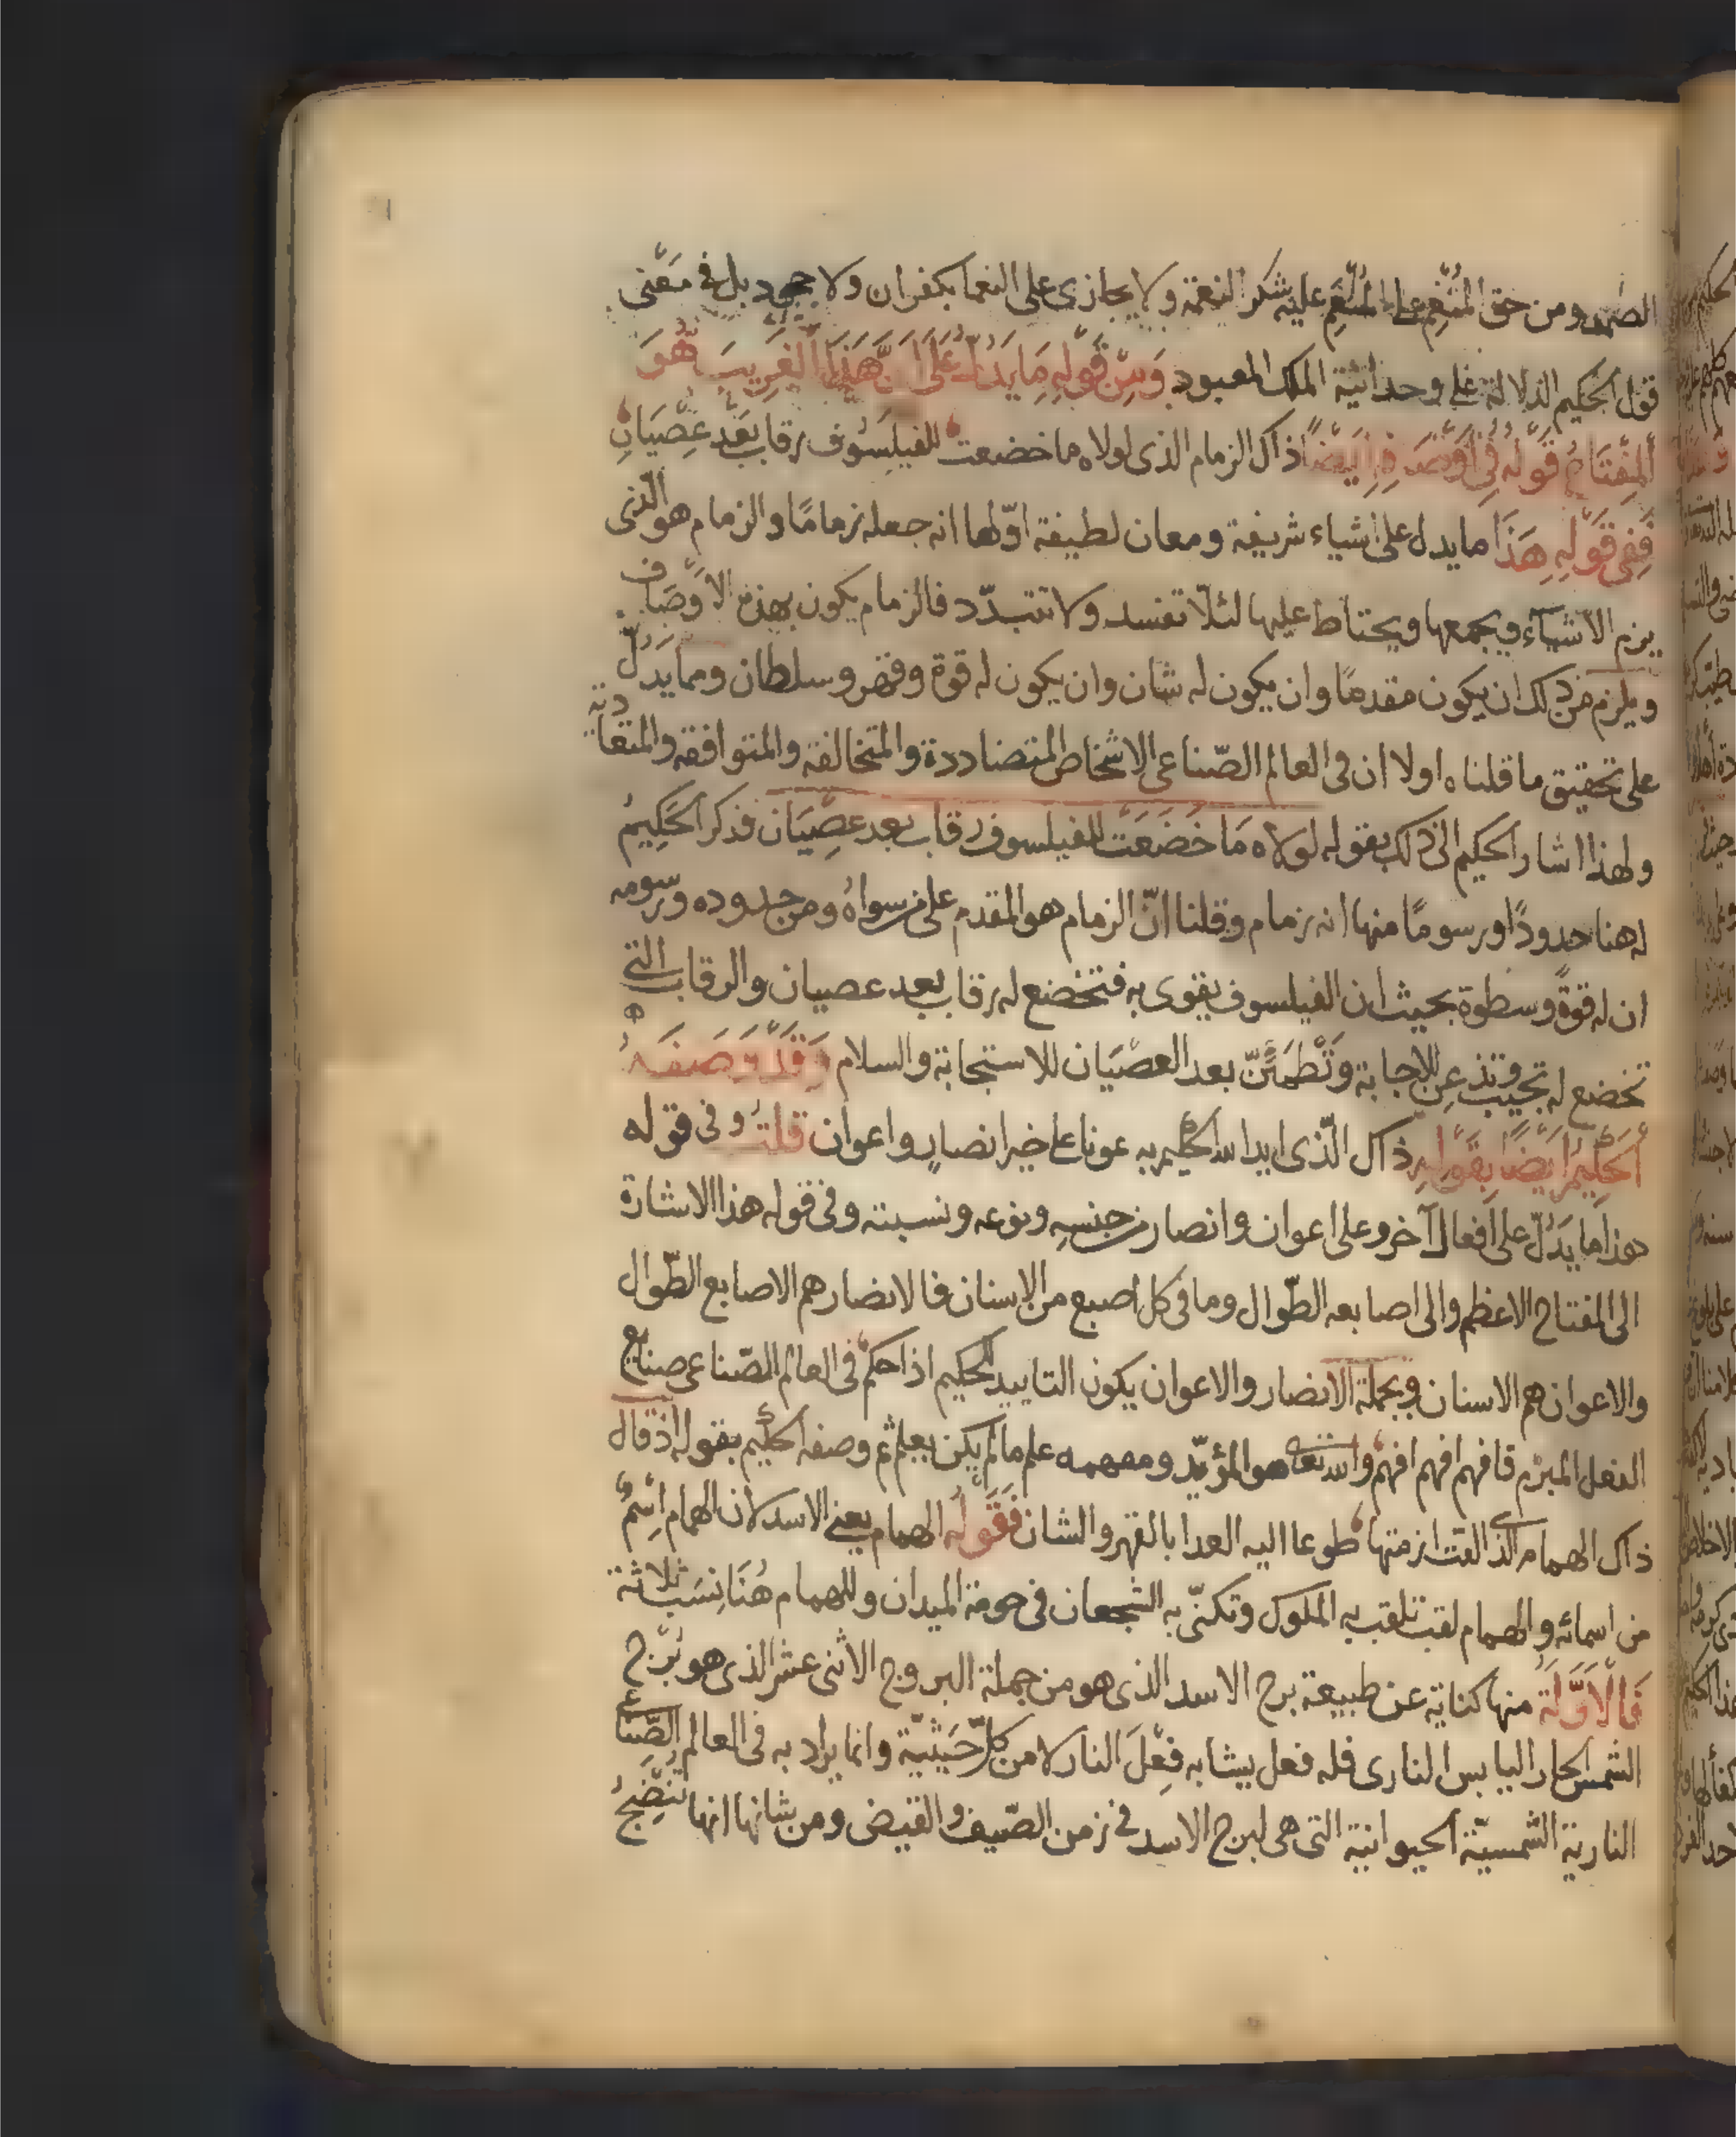 الصمد ومن حق المُنْعِم على المُنْعَم عليه شكر النعمة ولا يجازى على النعما بكفران ولا جحود بل فى مَعْنى
قول الحكيم الدلالة على وحدانية الملك المعبود وَمِنْ قَوْلِهِ مَا يَدُلُّ عَلَى اَنَّ هَذَا الْغَرِيبَ هُوَ
اَلْمِفْتَاحُ قَوْلُهُ فِى وَصْفِهِ اَيْضًا ذاك الزمام الذى لولاه ما خضعت للفيلسوف رقاب بَعْد عِصْيَانِ
فَفِى قَوْلِهِ هَذَا ما يدل على اشياء شريفة ومعان لطيفة اوّلها انه جعله زمامًا والزمام هو الّذى
يزم الاشيآء ويجمعها ويحتاط عليها لئلّا تفسد ولا تتبدّد فالزمام يكون بهذه الاوْصَاف
ويلزم من ذلك ان يكون مقدمًا وان يكون له شان وان يكون له قوة وقهر وسلطان ومما يَدُلّ
على تحقيق ما قلناه اولا ان فى العالم الصّناعى الاشخاص المتضاددة والمتخالفة والمتوافقة والمتعادية
ولهذا اشار الحكيم الى ذلك بقوله لولاه مَا خَضَعَتْ للفيلسوف رقاب بعد عِصْيَان فذكر الحَكِيمُ
له هنا حدودًا ورسومًا منها انه زمام وقلنا انّ الزمام هو المقدم على من سواهُ ومن حدوده ورسومه
ان له قوةً وسطوة بحيث ان الفيلسوف يقوى به فتخضع له رقاب بعد عصيان والرقاب التى
تخضع له تجيب وتذعن للاجابة وَتَطْمَئِنّ بعد العصْيَان للاستجابة والسلام وَقَدْ وَصَفَهُ
اَلْحَكِيمُ اَيْضًا بِقَوْلِهِ ذاك الّذى ايد الله الحكيم به عونا على خير انصار واعوان قلتُ وفى قوله
هذا ما يَدُلّ على افعال آخر وعلى اعوان وانصار من جنسِهِ ونوعه ونسبته وفى قوله هذا الاشارة
الى المفتاح الاعظم والى اصابعه الطّوال وما فى كل اصبع من الاسنان فالانصار هم الاصابع الطّوال
والاعوان هم الاسنان وبجملة الانصار والاعوان يكون التاييد للحكيم اذا حكم فى العالم الصّناعى صنايع
الفعل المبرم فافهم افهم افهم والله تعا هو المؤيّد ومفهمه علم مالم يكن يعلم ثم وصفه الحكيم بقوله اذ قال
ذاك الهمام الذى القت ازمتها طوعا اليه العدا بالقهر والشان فَقَوْلُهُ الهمام يعنى الاسد لان الهمام اِسْمٌ
من اسمائه والهمام لقب تلقب به الملوك وتكنّى به الشجعان فى حومة الميدان وللهمام هُنَا نِسَب ثلاثة
فَالْاَوَّلَةُ منها كناية عن طبيعة برج الاسد الذى هو من جملة البروج الاثنى عشر الذى هو بُرْج
الشمس الحار اليابس النارى فله فعل يشابه فِعْلَ النار لا من كلّ حَيْثيّة وانما يراد به فى العالم الصّناعى
النارية الشّمسيّة الحيوانية التى هى لبرج الاسد فى زمن الصّيف والقيض ومن شانها انها تُنْضِجُ